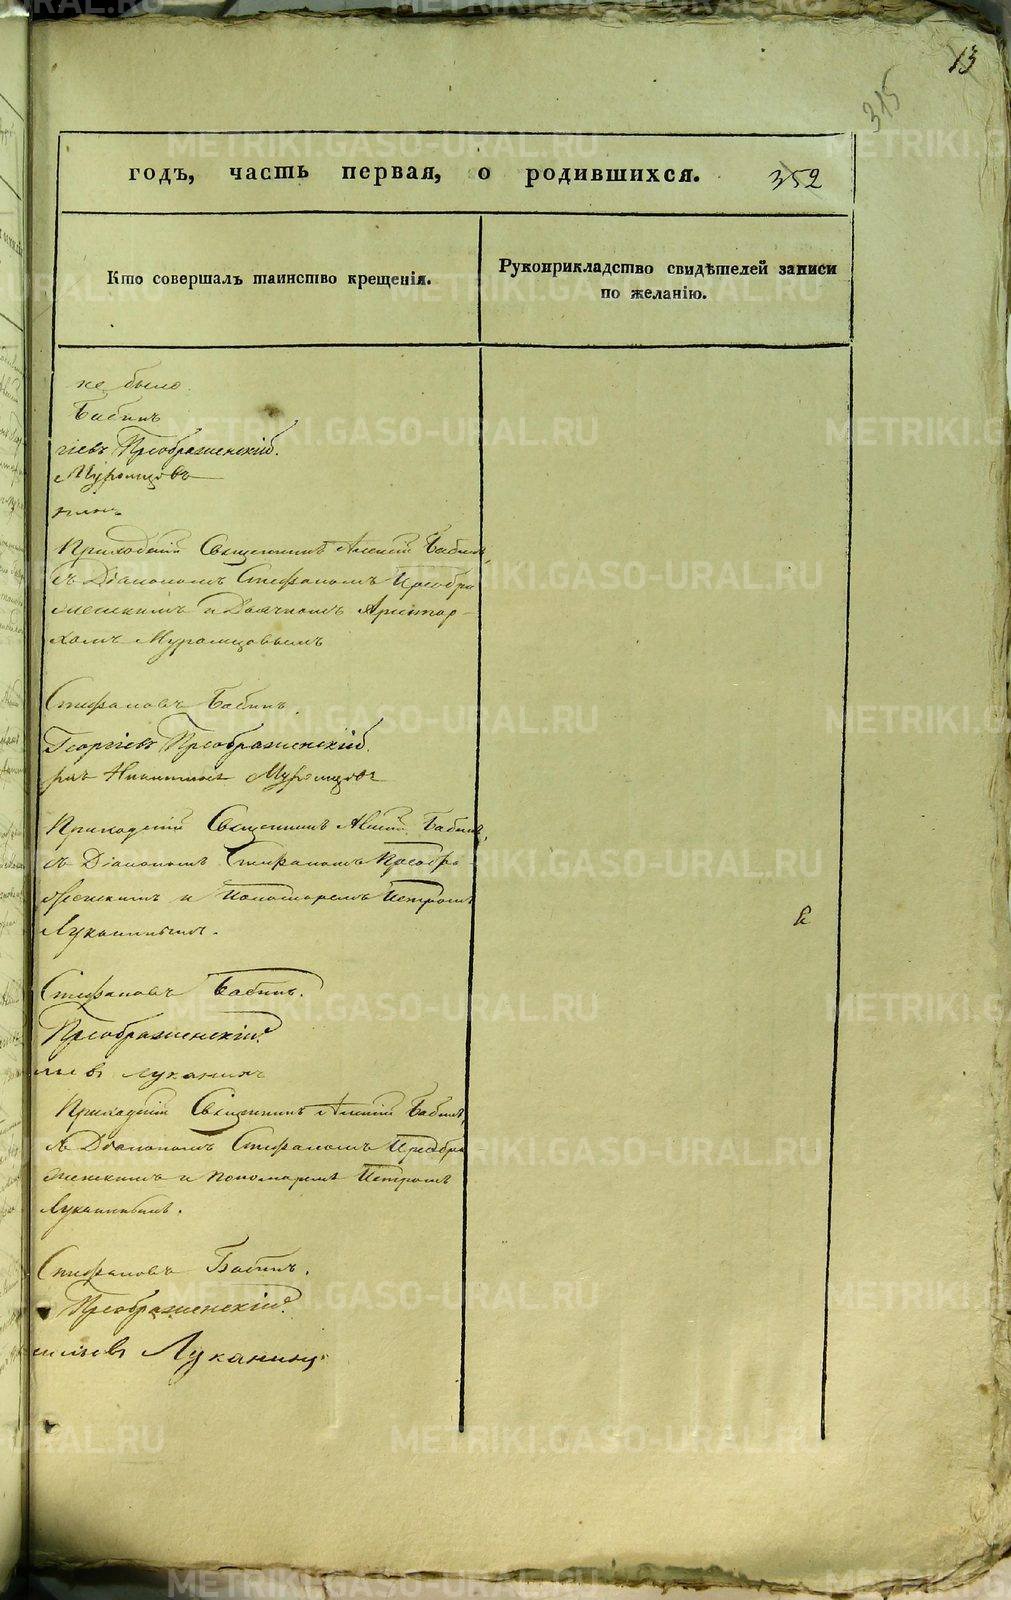 13
315
годъ, часть первая, о родившихся. 352
Кто совершалъ таинство крещенія.
Рукоприкладство свидѣтелей записи
по желанію.
не было.
Бабинъ
гіевъ Преображенскій.
Муромцовъ
Приходскій Священникъ Алексій Бабинъ,
съ Діакономъ Стефаномъ Преобра
женскимъ и Дьячкомъ Аристар-
хомъ Муромцовымъ
Стефановъ Бабинъ.
Георгіевъ Преображенскій.
рхъ Никитинъ Муромцовъ
Приходскій Священникъ Алексій Бабинъ,
съ Діакономъ Стефаномъ Преобра
женскимъ и Пономаремъ Петромъ
Луканинымъ.
Стефановъ Бабинъ.
Преображенскій.
въ Луканинъ
Приходскій Священникъ Алексій Бабинъ,
съ Діакономъ Стефаномъ Преобра
женскимъ и Пономаремъ Петромъ
Луканинымъ.
Стефановъ Бабинъ.
Преображенскій.
Луканинъ
METRIKI.GASO-URAL.RU